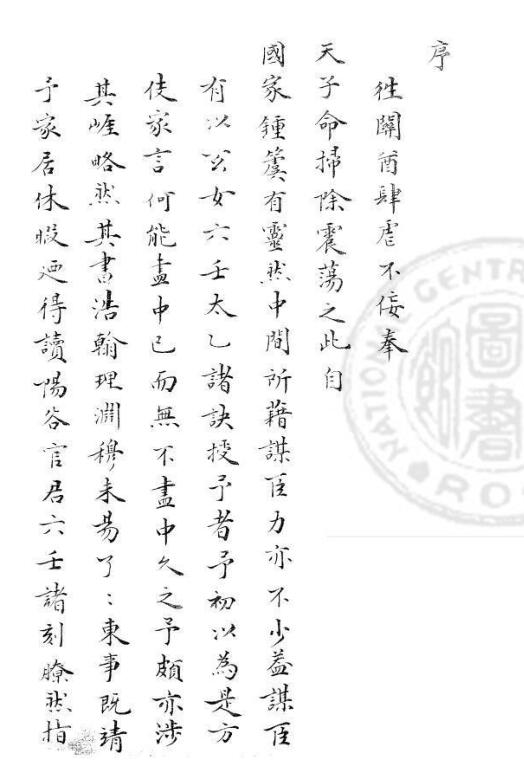 序
徃關酋肆虐不佞奉
天子命掃除震蕩之此自
國家鍾簴有靈然中間所藉謀臣力亦不少葢謀臣
有以公女六壬太乙諸訣授予者予初以為是方
伎家言何能盡中已而無不盡中久之予頗亦涉
其崕略然其書浩翰理淵穆未易了:東事既靖
予家居休暇廼得讀陽谷官君六壬諸刻瞭然指
國家圖書館
NATIONAL CENTR
ROC